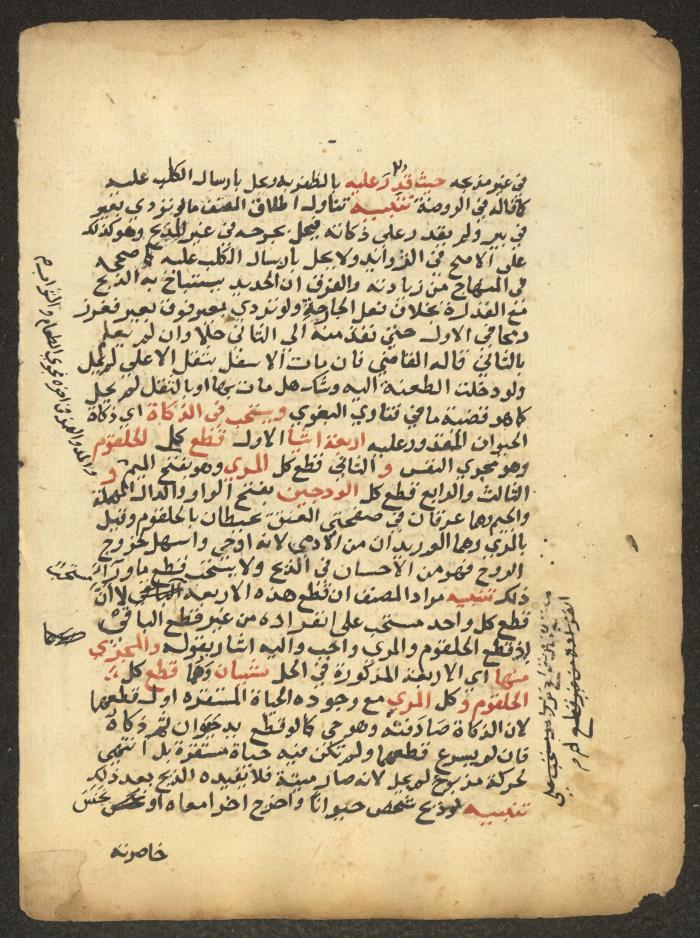 في غير مذبحه حيث قدر عليه بالظفر به ويحل بارسال الكلب عليه
كما قاله في الروضة تنبيه تناول اطلاق المصنف ما لو تردى بعير
في بير ولم يقدر على ذكاته فيحل بجرحه في غير المذبح وهو كذلك
على الاصح في الزوايد ولا يحل بارسال الكلب عليه كما صححه
في المنهاج من زيادته والفرق ان الحديد يستباح به الذبح
مع القدرة بخلاف فعل الجارحة ولو تردى بعير فوق بعير فغرز
رمحا في الاول حتى نفذ منه الى الثاني حلا وان لم يعلم
بالثاني قاله القاضي فان مات الاسفل بثقل الاعلى لم يحل
ولو دخلت الطعنة اليه وشك هل مات بها او بالثقل لم يحل
كما هو قضية ما في فتاوي البغوي ويستحب في الذكاة اي ذكاة
الحيوان المقدور عليه اربعة اشيا الاول قطع كل الحلقوم
وهو مجري النفس و الثاني قطع كل المري وهو بفتح الميم و
الثالث والرابع قطع كل الودجين بفتح الواو والدال المهملة
والجيم وهما عرقان في صفحتي العنق محيطان بالحلقوم وقيل
بالمري وهما الوريدان من الادمي لانه اوحي واسهل لخروج
الروح فهو من الاحسان في الذبح ولا يستحب قطع ما ورآء
ذلك تنبيه مراد المصنف ان قطع هذه الاربعة مستحب لا ان
قطع كل واحد مستحب على انفراده من غير قطع الباقي
اذ قطع الحلقوم والمري واجب واليه اشار بقوله والمجزي
منها اي الاربعة المذكورة في الحل شيئان وهما قطع كل
الحلقوم و كل المري مع وجود الحياة المستقرة اول قطعهما
لان الذكاة صادفته وهو حي كما لو قطع يد حيوان ثم ذكاه
فان لم يسرع قطعهما ولم تكن فيه حياة مستقرة بل انتهى
لحركة مذبوح لم يحل لانه صار ميتة فلا يفيده الذبح بعد ذلك
تنبيه لو ذبح شخص حيوانا واخرج اخر امعاه او نخس
خاصرته